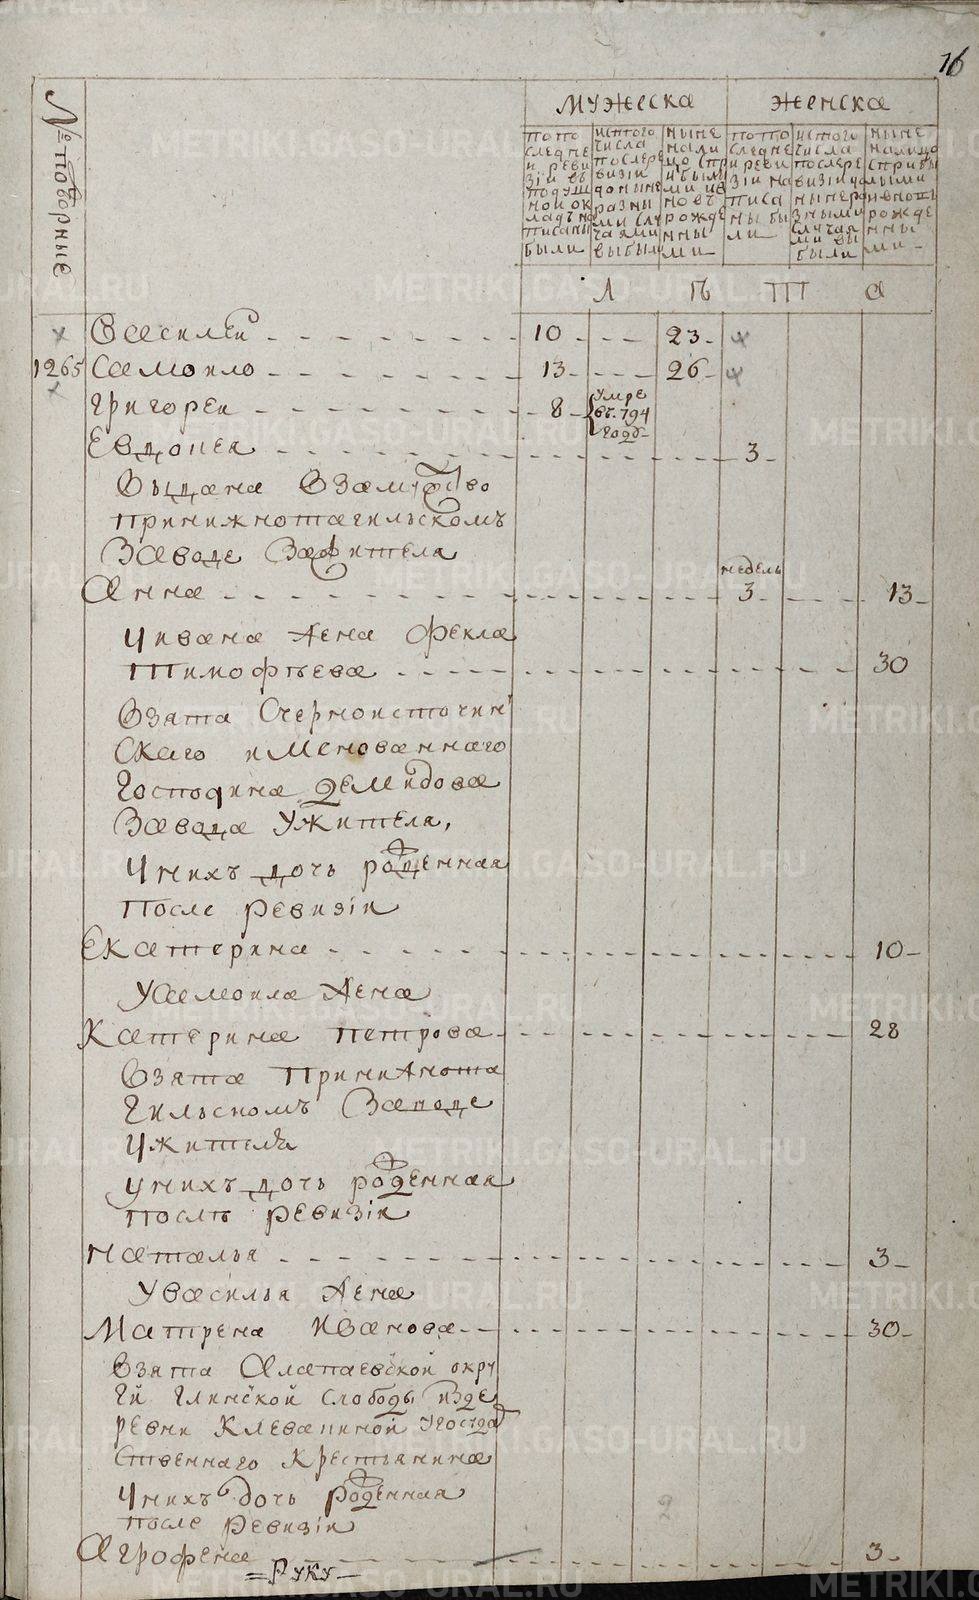 16
№ поворные
мужеска
женска
по по
следне
и реви
зіи въ
подуш
ной ок
ладъ на
писаны
были
исътого
числа
послере
визіи
доныне
разны
ми слу
чаями
выбыли
ныне
нали
цо спри
былы
ми ив
новъ
рожде
нны
ми
по по
следне
и реви
зіи на
писа
ны бы
ли
исътого
числа
послере
визіи до
ныне ра
зными
случая
ми вы
были
ныне
налицо
сприбы
лыми
ивновь
рожде
нны
ми
Л Ѣ Т а
Василеи 10 23
1265 Самоило 13 26
Григореи 8 умре въ 794 годѣ
Евдокея 3
Выдана взамуство
принижнотагильскомъ
Заводе Зажителя
Анна недель 3 13
Уивана жена Фекла
Тимофѣева 30
Взята Счерноисточин
скаго именованнаго
Господина Демидова
Завода ужителя,
Унихъ дочь рожденная
После ревизіи
Екатерина 10
Усамоила жена
Катерина Петрова 28
Взята Принижнота
гильскомъ Заводе
Ужителя
Унихъ дочь рожденная
Послѣ ревизіи
Наталья 3
Увасилья жена
Матрена Иванова 30
Взята Алапаевской окру
ги Глинской Слободы изде
ревни Клевакиной Угосуда
ственнаго крестьянина
Унихъ дочь рожденная
После ревизіи
Агрофена 3
=Руку-
METRIKI.GASO-URAL.RU